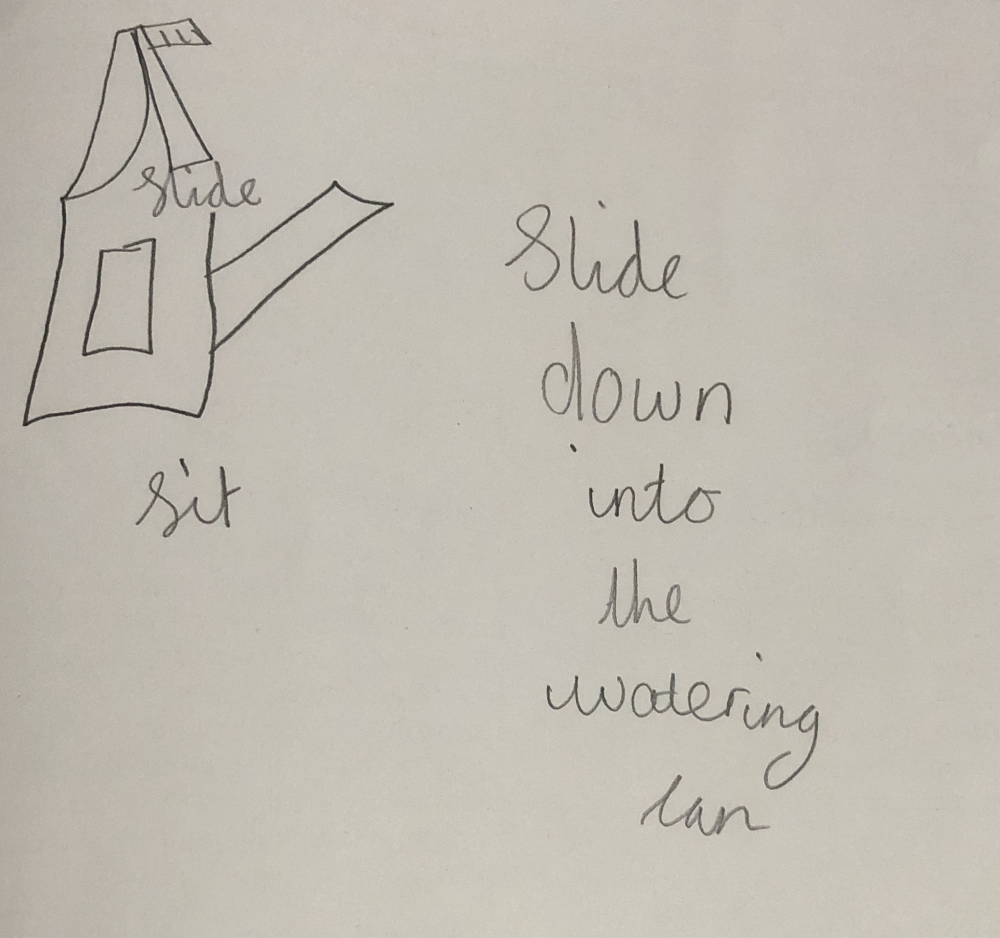 slide
sit
Slide
down
into
the
watering
can